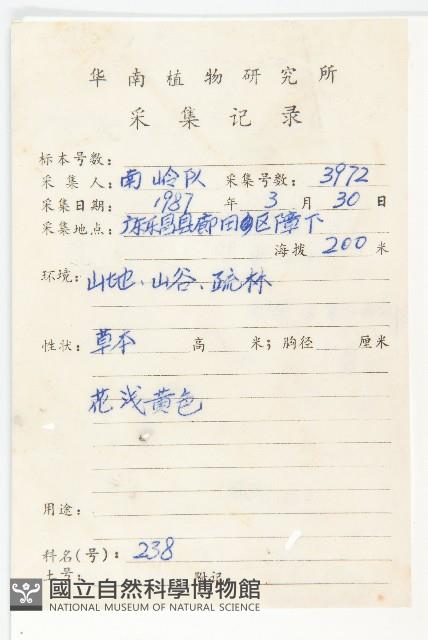 华南植物研究所
采集记录
标本号数：
采集人：南岭队 采集号数：3972
采集日期：1987年3月30日
采集地点：广东乐昌县廊田区障下
海拨200米
环境：山地、山谷、疏林
性状：草本 高 米；胸径 厘米
花浅黄色
用途：
科名(号)：238
土号： 附记
國立自然科學博物館
NATIONAL MUSEUM OF NATURAL SCIENCE